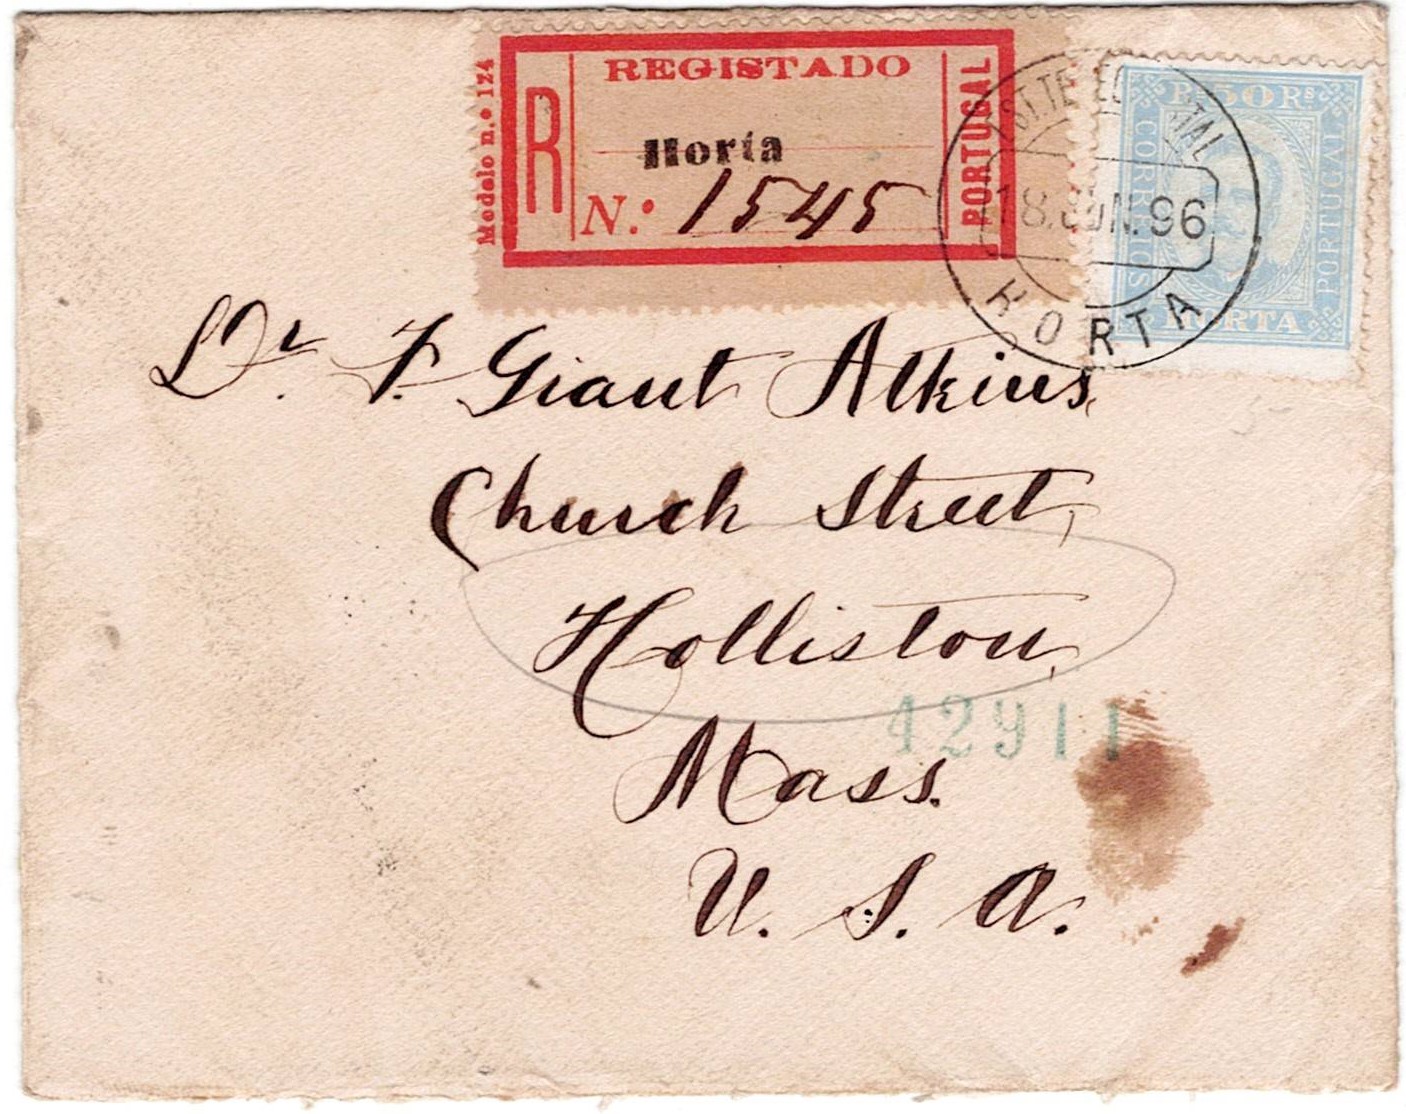 REGISTADO
Modelo n.º 124
R
Horta
N.º 1545
PORTUGAL
EST. TELEG POSTAL
18. JUN. 96
HORTA
50 Rs
CORREIOS
PORTUGAL
HORTA
Dr. F. Grant Atkins,
Church Street,
Holliston,
Mass.
U. S. A.
42911